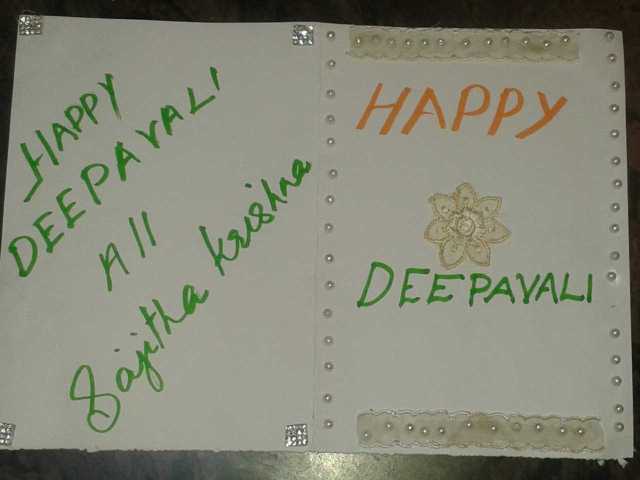 HAPPY
DEEPAVALI
All
Sajitha Krishna
HAPPY
DEEPAVALI